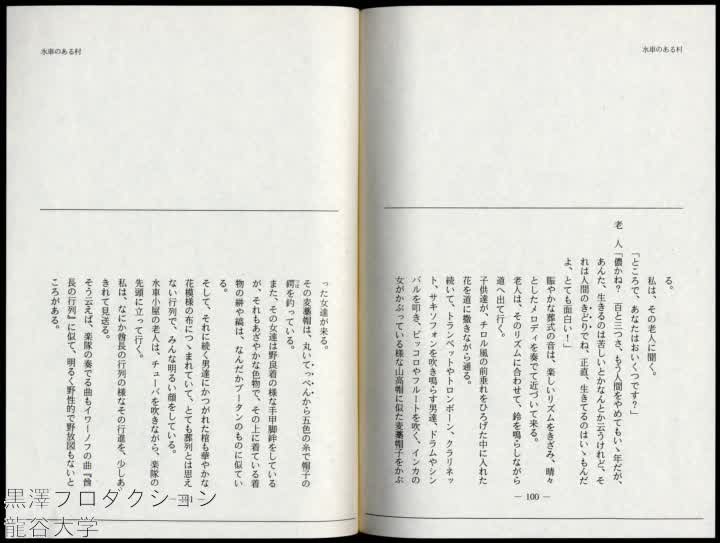 水車のある村
る。
私は、その老人に聞く。
「ところで、あなたはおいくつです?」
老 人「儂かね? 百と三つさ、もう人間をやめてもいゝ年だが、
あんた、生きるのは苦しいとかなんとか云うけれど、そ
れは人間のきどりでね、正直、生きてるのはいゝもんだ
よ、とても面白い!」
賑やかな葬式の音は、楽しいリズムをきざみ、晴々
としたメロディを奏でて近づいて来る。
老人は、そのリズムに合わせて、鈴を鳴らしながら
道へ出て行く。
子供達が、チロル風の前垂れをひろげた中に入れた
花を道に撒きながら通る。
続いて、トランペットやトロンボーン、クラリネッ
ト、サキソフォンを吹き鳴らす男達、ドラムやシン
バルを叩き、ピッコロやフルートを吹く、インカの
女がかぶっている様な山高帽に似た麦藁帽子をかぶ
― 100 ―
水車のある村
った女達が来る。
その麦藁帽は、丸いてっぺんから五色の糸で帽子の
鍔を釣っている。
また、その女達は野良着の様な手甲脚絆をしている
が、それもあざやかな色物で、その上に着ている着
物の絣や縞は、なんだかブータンのものに似てい
る。
そして、それに続く男達にかつがれた棺も華やかな
花模様の布につゝまれていて、とても葬列とは思え
ない行列で、みんな明るい顔をしている。
水車小屋の老人は、チューバを吹きながら、楽隊の
先頭に立って行く。
私は、なにか酋長の行列の様なその行進を、少しあ
きれて見送る。
そう云えば、楽隊の奏でる曲もイワーノフの曲『酋
長の行列』に似て、明るく野性的で野放図もないと
ころがある。
黒澤プロダクション
龍谷大学